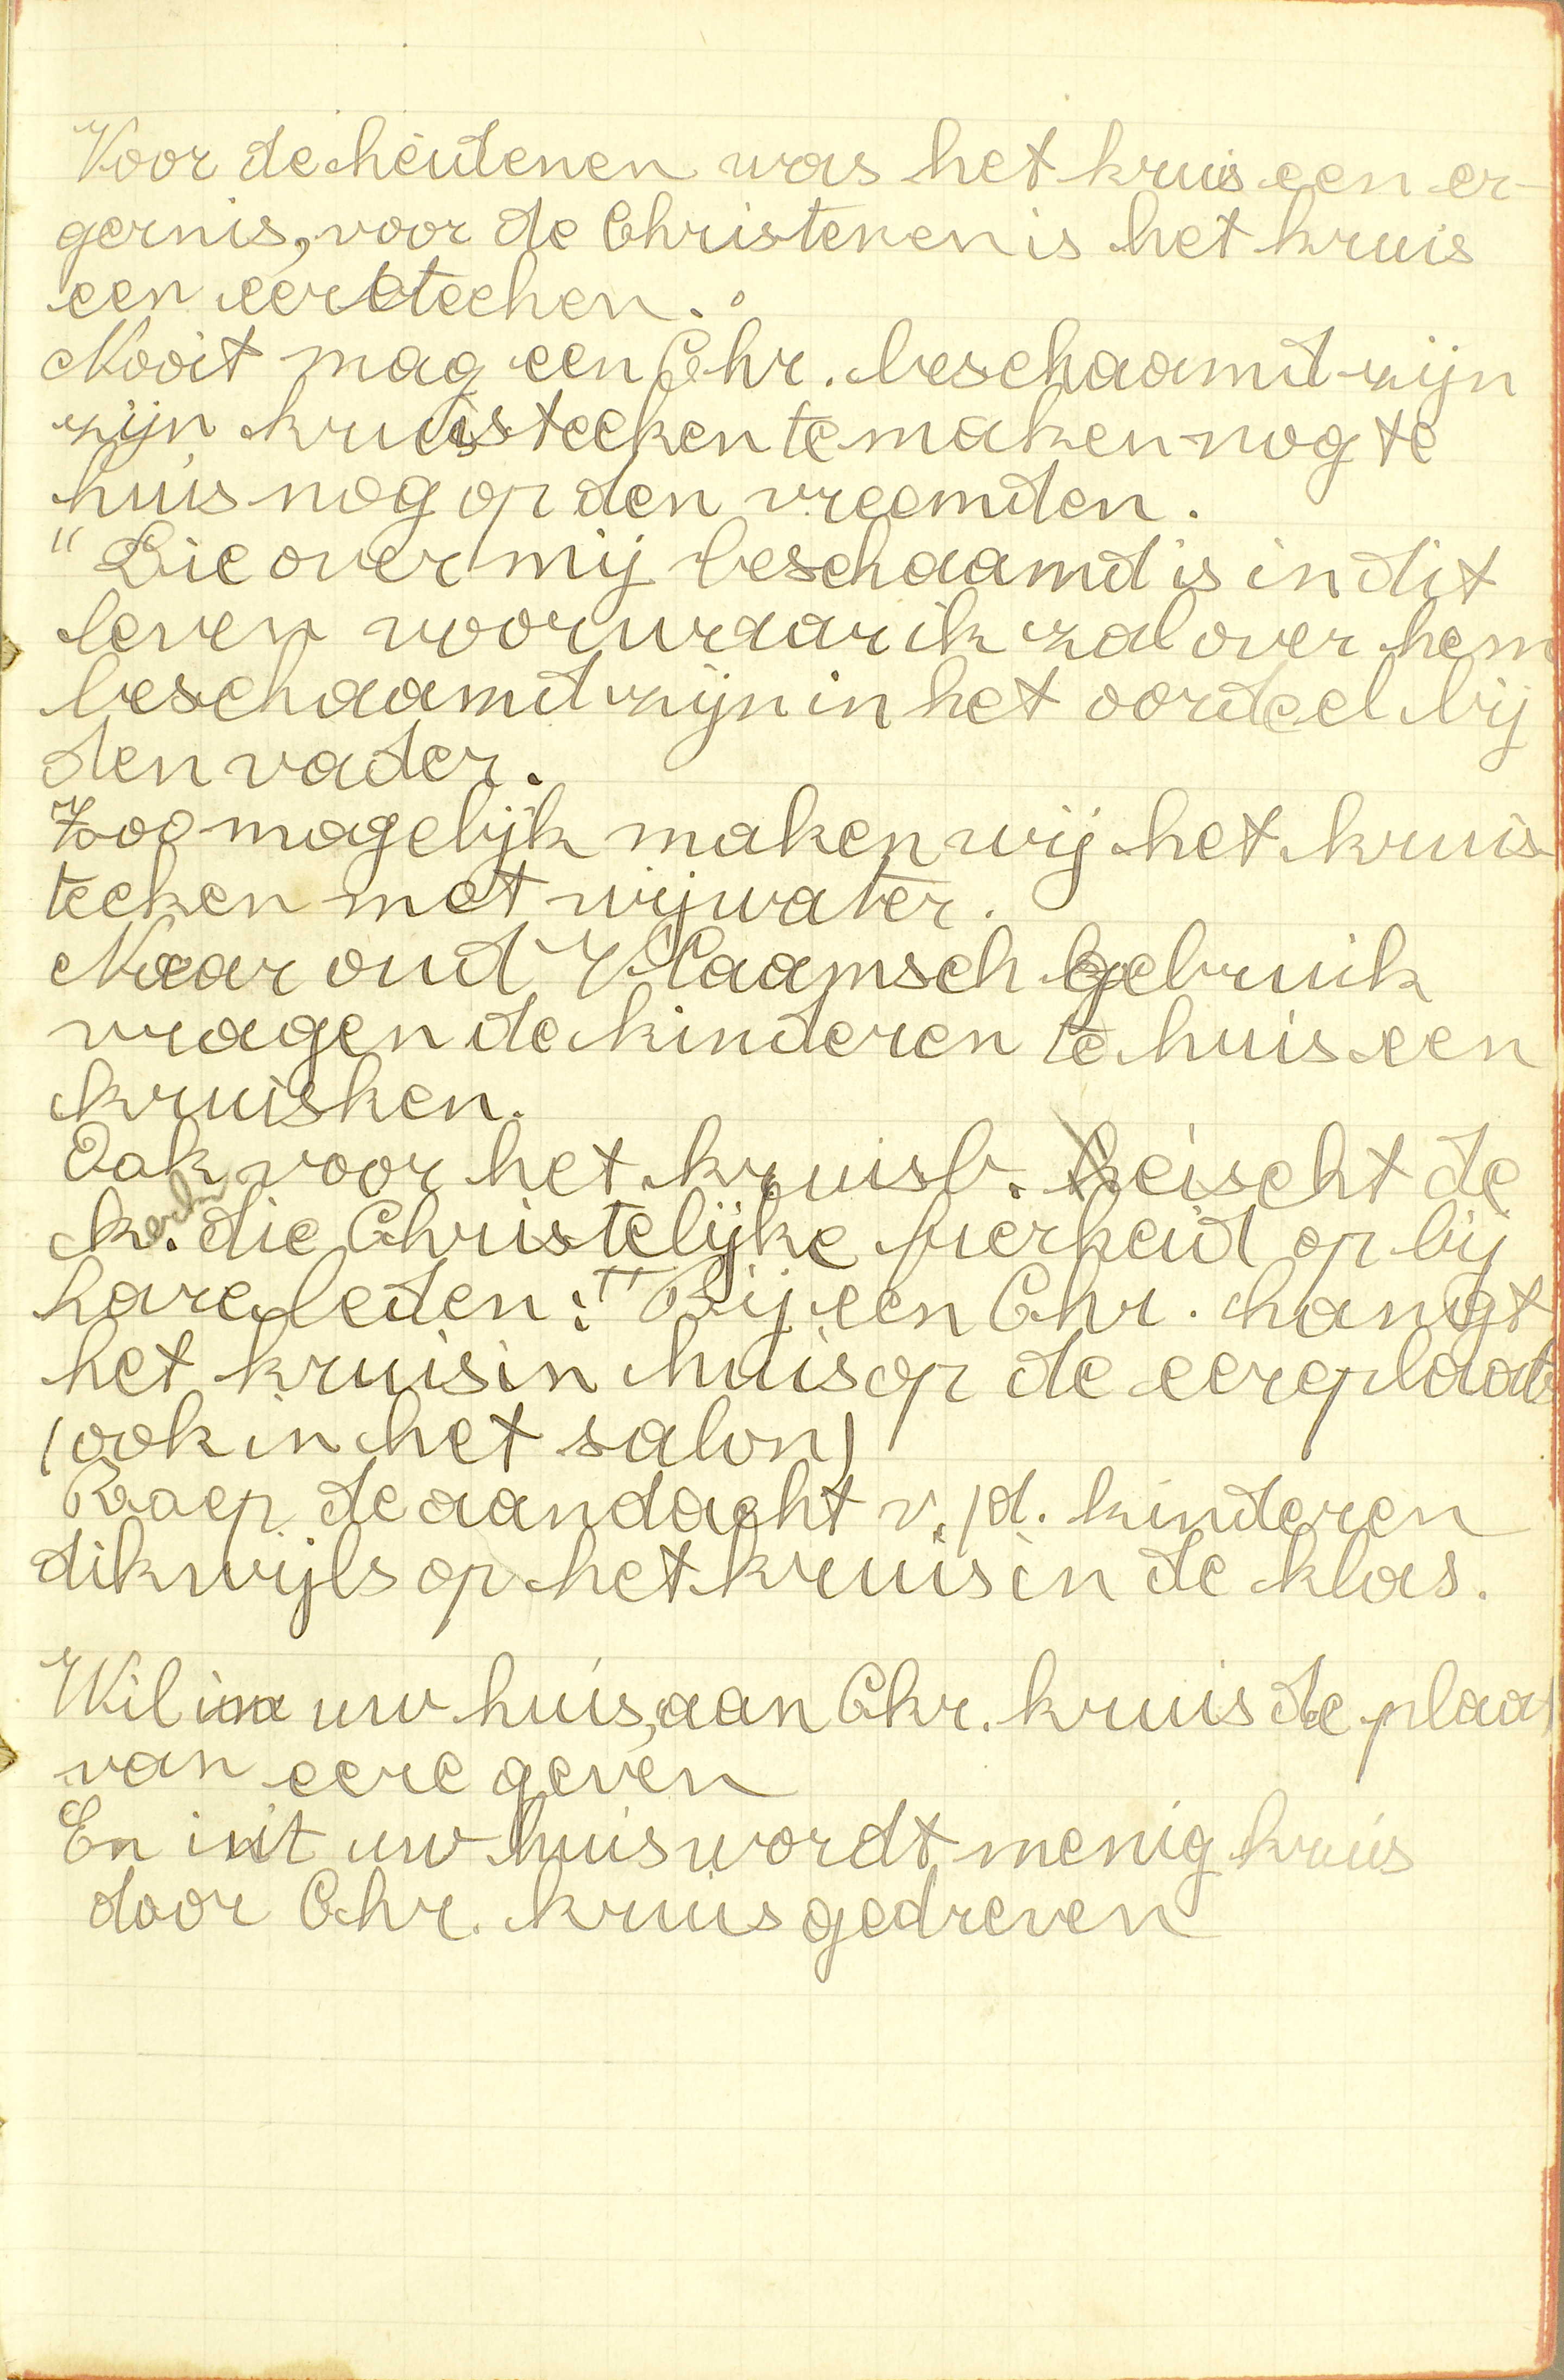 Voor de heidenen was het kruis een er-
gernis, voor de Christenen is het kruis
een eereteeken.
Nooit mag een Chr. beschaamd zijn
zijn kruisteeken te maken nog te
huis nog op den vreemden.
"Die over mij beschaamd is in dit
leven voorwaar ik zal over hem
beschaamd zijn in het oordeel bij
den vader.
Zoo mogelijk maken wij het kruis
teeken met wijwater.
Naar oud Vlaamsch gebruik
vragen de kinderen te huis een
kruisken.
Ook voor het kruisb. eischt de
k. die Christelijke fierheid op bij
hare leden: "Bij een Chr. hangt
het kruis in huis op de eereplaats
(ook in het salon)
Roep de aandacht v./d. kinderen
dikwijls op het kruis in de klas.
Wil in uw huis, aan Chr. kruis de plaa
van eere geven
En uit uw huis wordt menig kruis
door Chr. kruis gedreven